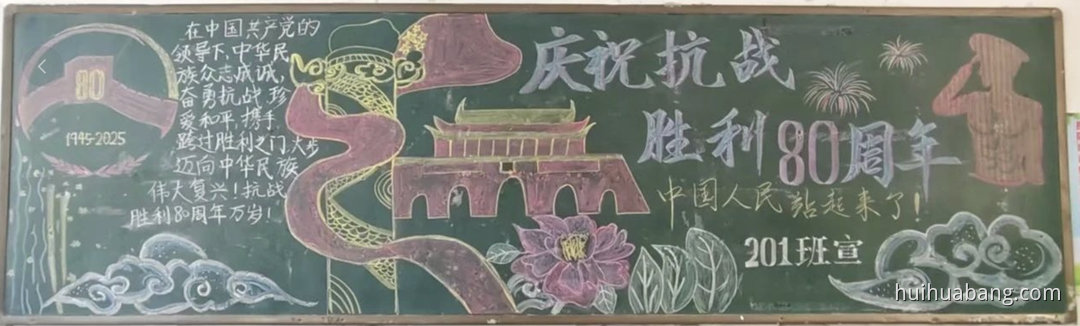 在中国共产党的
领导下,中华民
族众志成诚,
奋勇抗战 珍
爱和平 携手
跨过胜利之门,大步
迈向中华民族
伟大复兴!抗战
胜利80周年万岁!
80
1945-2025
庆祝抗战
胜利80周年
中国人民站起来了!
201班宣
huihuabang.com